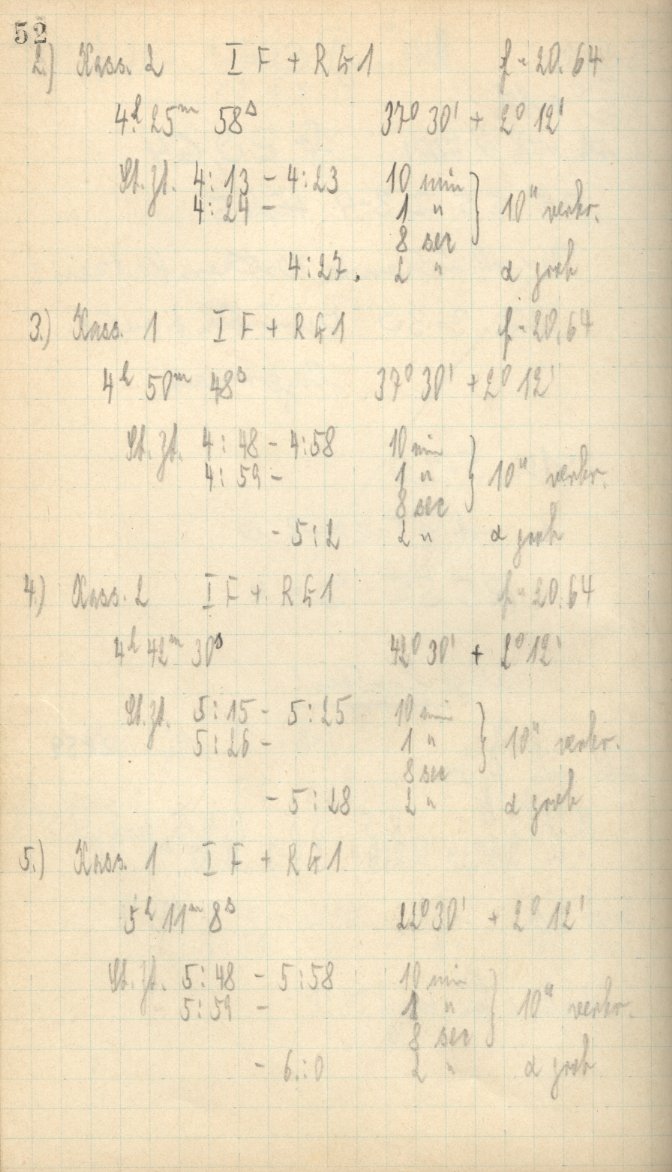 52
2.) Kass. 2 I F + R G 1 f = 20.64
4h 25m 58s 37° 30' + 2° 12'
St. Zt. 4:13 - 4:23 10 min
4:24 - 1 " 10" verkr.
8 sec
4:27. 2 " α grob
3.) Kass. 1 I F + R G 1 f = 20,64
4h 50m 48s 37° 30' + 2° 12'
St. Zt. 4:48 - 4:58 10 min
4:59 - 1 " 10" verkr.
8 sec
- 5:2 2 " α grob
4.) Kass. 2 I F + R G 1 f = 20,64
4h 42m 30s 42° 30' + 2° 12'
St. Zt. 5:15 - 5:25 10 min
5:26 - 1 " 10" verkr.
8 sec
- 5:28 2 " α grob
5.) Kass. 1 I F + R G 1
5h 11m 8s 22° 30' + 2° 12'
St. Zt. 5:48 - 5:58 10 min
5:59 - 1 " 10" verkr.
8 sec
- 6:0 2 " α grob